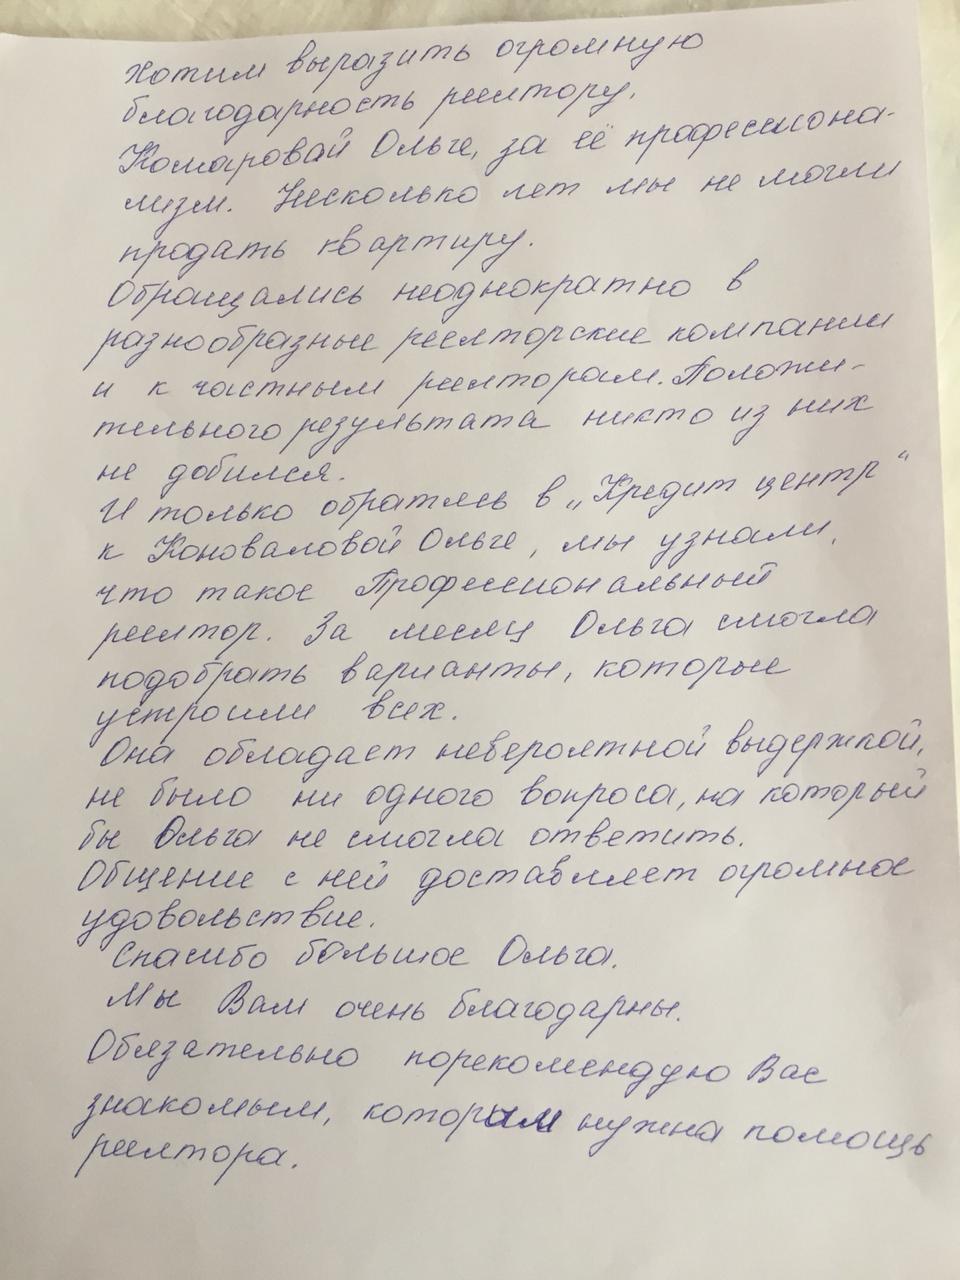 Хотим выразить огромную
благодарность реелтору,
Комаровай Ольге, за её профессиона-
лизм. Несколько лет мы не могли
продать квартиру.
Обращались неоднократно в
разнообразные реелторские компании
и к частным реелторам. Положи-
тельного результата никто из них
не добился.
И только обратясь в „Кредит центр"
к Коноваловой Ольге, мы узнали,
что такое Професиональный
реелтор. За месяц Ольга смогла
подобрать варианты, которые
устроили всех.
Она обладает невероятной выдержкой,
не было ни одного вопроса, на который
бы Ольга не смогла ответить.
Общение с ней доставляет огромное
удовольствие.
Спасибо большое Ольга.
Мы Вам очень благодарны.
Обязательно порекомендую Вас
знакомым, которым нужна помощь
реелтора.